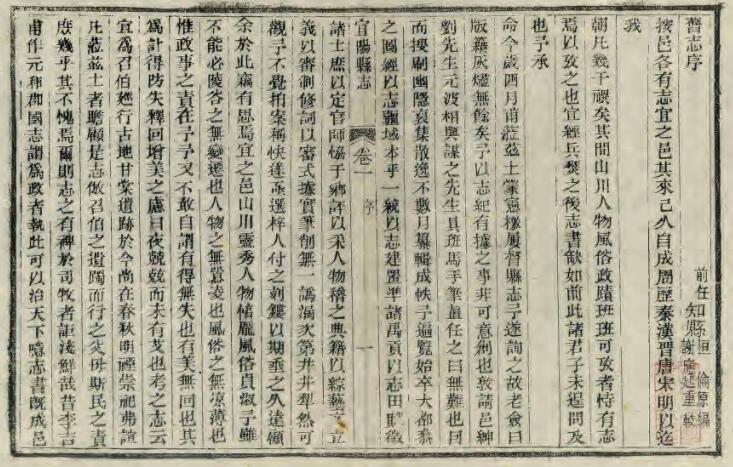 舊志序
前任知縣 申恆倫原編 謝應起重校
按邑各有志宜之邑其來已久自成周歷秦漢晉唐宋明以迄
我
朝凡幾千禩矣其間山川人物風俗政蹟班班可攷者恃有志
焉以攷之也宜經兵燹之後志書缺如前此諸君子未遑問及
也予承
命今歲四月甫蒞茲土蒙憲檄屢督縣志予遂詢之故老僉曰
版籍灰燼無餘矣予以志紀有據之事非可意創也敦請邑紳
劉先生元波相與謀之先生具班馬手筆直任之曰無難也因
而搜剔幽隱裒集散逸不數月纂輯成帙予遍覽始卒大都彙
之圖經以志疆域本乎一統以志建置準諸禹貢以志田賦徵
宜陽縣志
卷一
序
一
諸士庶以定官師協于鄉評以采人物稽之典籍以綜藝文立
義以審制修詞以審式據實筆削無一譌漏次第井井犂然可
觀予不覺拍案稱快遂亟選梓人付之剞劂以期垂之久遠顧
余於此竊有思焉宜之邑山川靈秀人物惇龐風俗貞淑予雖
不能必陵谷之無變遷也人物之無囂凌也風俗之無涼薄也
惟政事之責在予予又不敢自謂有得無失也有美無回也其
爲計得防失釋回增美之慮日夜兢兢而未有艾也考之志云
宜爲召伯廵行古地甘棠遺跡於今尚在春秋明禋崇祀弗諼
凡蒞茲土者瞻顧是志倣召伯之遺躅而行之父母斯民之責
庶幾乎其不愧焉爾則志之有裨於司牧者詎淺鮮哉昔李吉
甫作元和郡國志謂爲政者執此可以治天下噫志書旣成邑